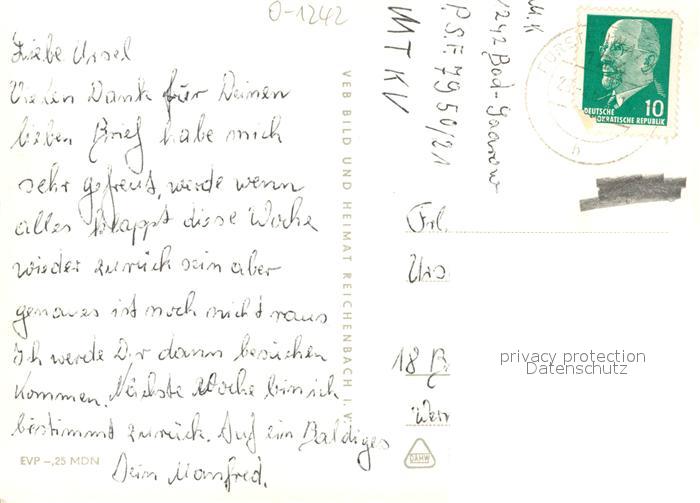 O-1242
Liebe Ursel
Vielen Dank für Deinen
lieben Brief habe mich
sehr gefreut, werde wenn
alles klappt diese Woche
wieder zurück sein aber
genaues ist noch nicht raus
Ich werde Dir dann besuchen
kommen. Nächste Woche bin ich
bestimmt zurück. Auf ein Baldiges
Dein Manfred.
EVP -,25 MDN
VEB BILD UND HEIMAT REICHENBACH I. V.
M.K
1242 Bad-Saarow
P.S.F. 7950/21
MTKV
FÜRST
DEUTSCHE
DEMOKRATISCHE REPUBLIK
10
Frl.
Urs
18 B
Wer
DAHW
privacy protection
Datenschutz